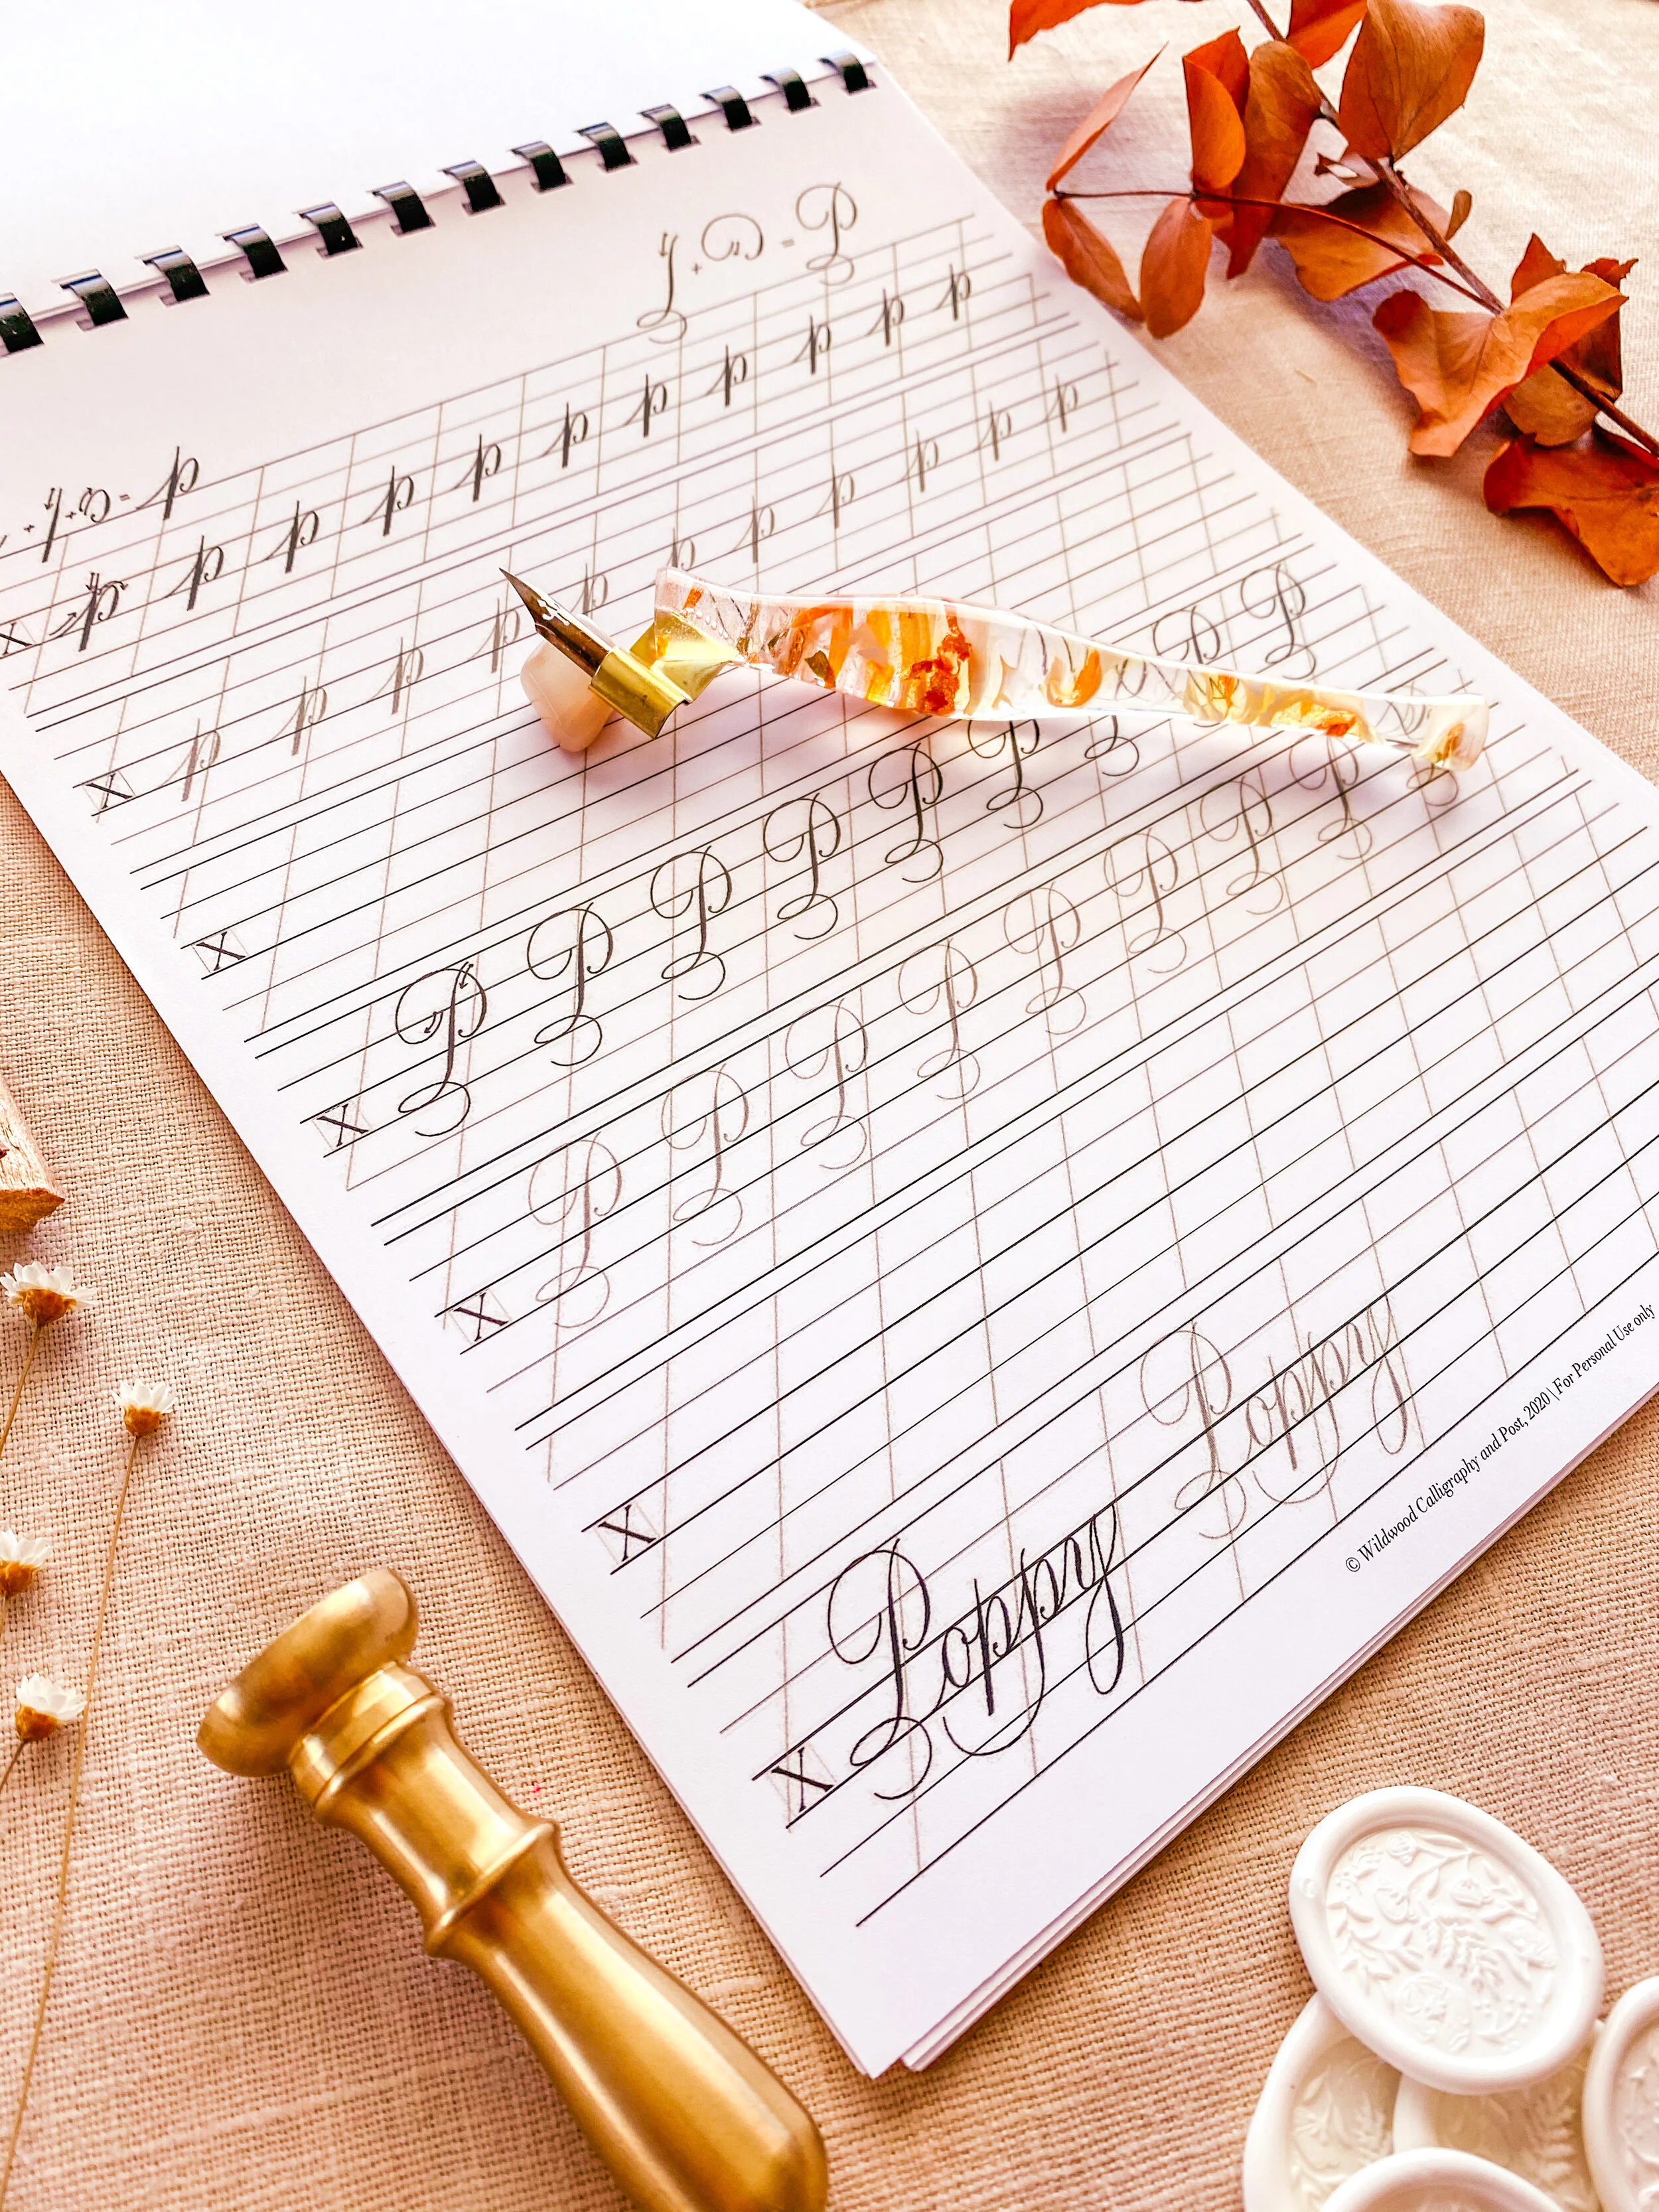 = p
+ = P
X p p p p p p p p p p p
X p p p p p p p p p p p
X
X P P P P P P P P P
X P P P P P P P P P
X
X Poppy Poppy
© Wildwood Calligraphy and Post, 2020 | For Personal Use only